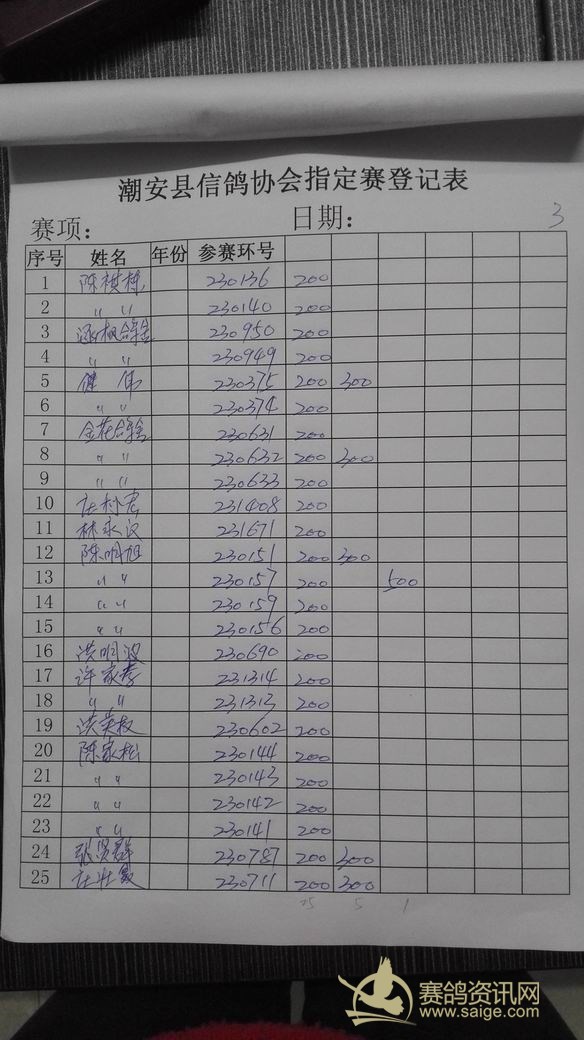 潮安县信鸽协会指定赛登记表
赛项： 日期： 3
序号 姓名 年份 参赛环号
1 陈祺槟 230136 200
2 〃 〃 230140 200
3 涵枫鸽舍 230950 200
4 〃 〃 230949 200
5 健伟 230375 200 300
6 〃 〃 230374 200
7 金花鸽舍 230631 200
8 〃 〃 230632 200 300
9 〃 〃 230633 200
10 231408 200
11 林永汉 231671 200
12 陈明旭 230151 200 300
13 〃 〃 230157 200 500
14 〃 〃 230159 200
15 〃 〃 230156 200
16 洪明波 230690 200
17 许家孝 231314 200
18 〃 〃 231313 200
19 洪英权 230602 200
20 陈家松 230144 200
21 〃 〃 230143 200
22 〃 〃 230142 200
23 〃 〃 230141 200
24 张贤群 230787 200 300
25 230711 200 300
25 5 1
赛鸽资讯网
www.saige.com